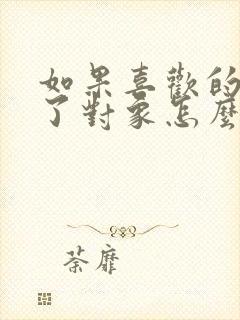 如果喜歡的
了對象怎麼
荼靡